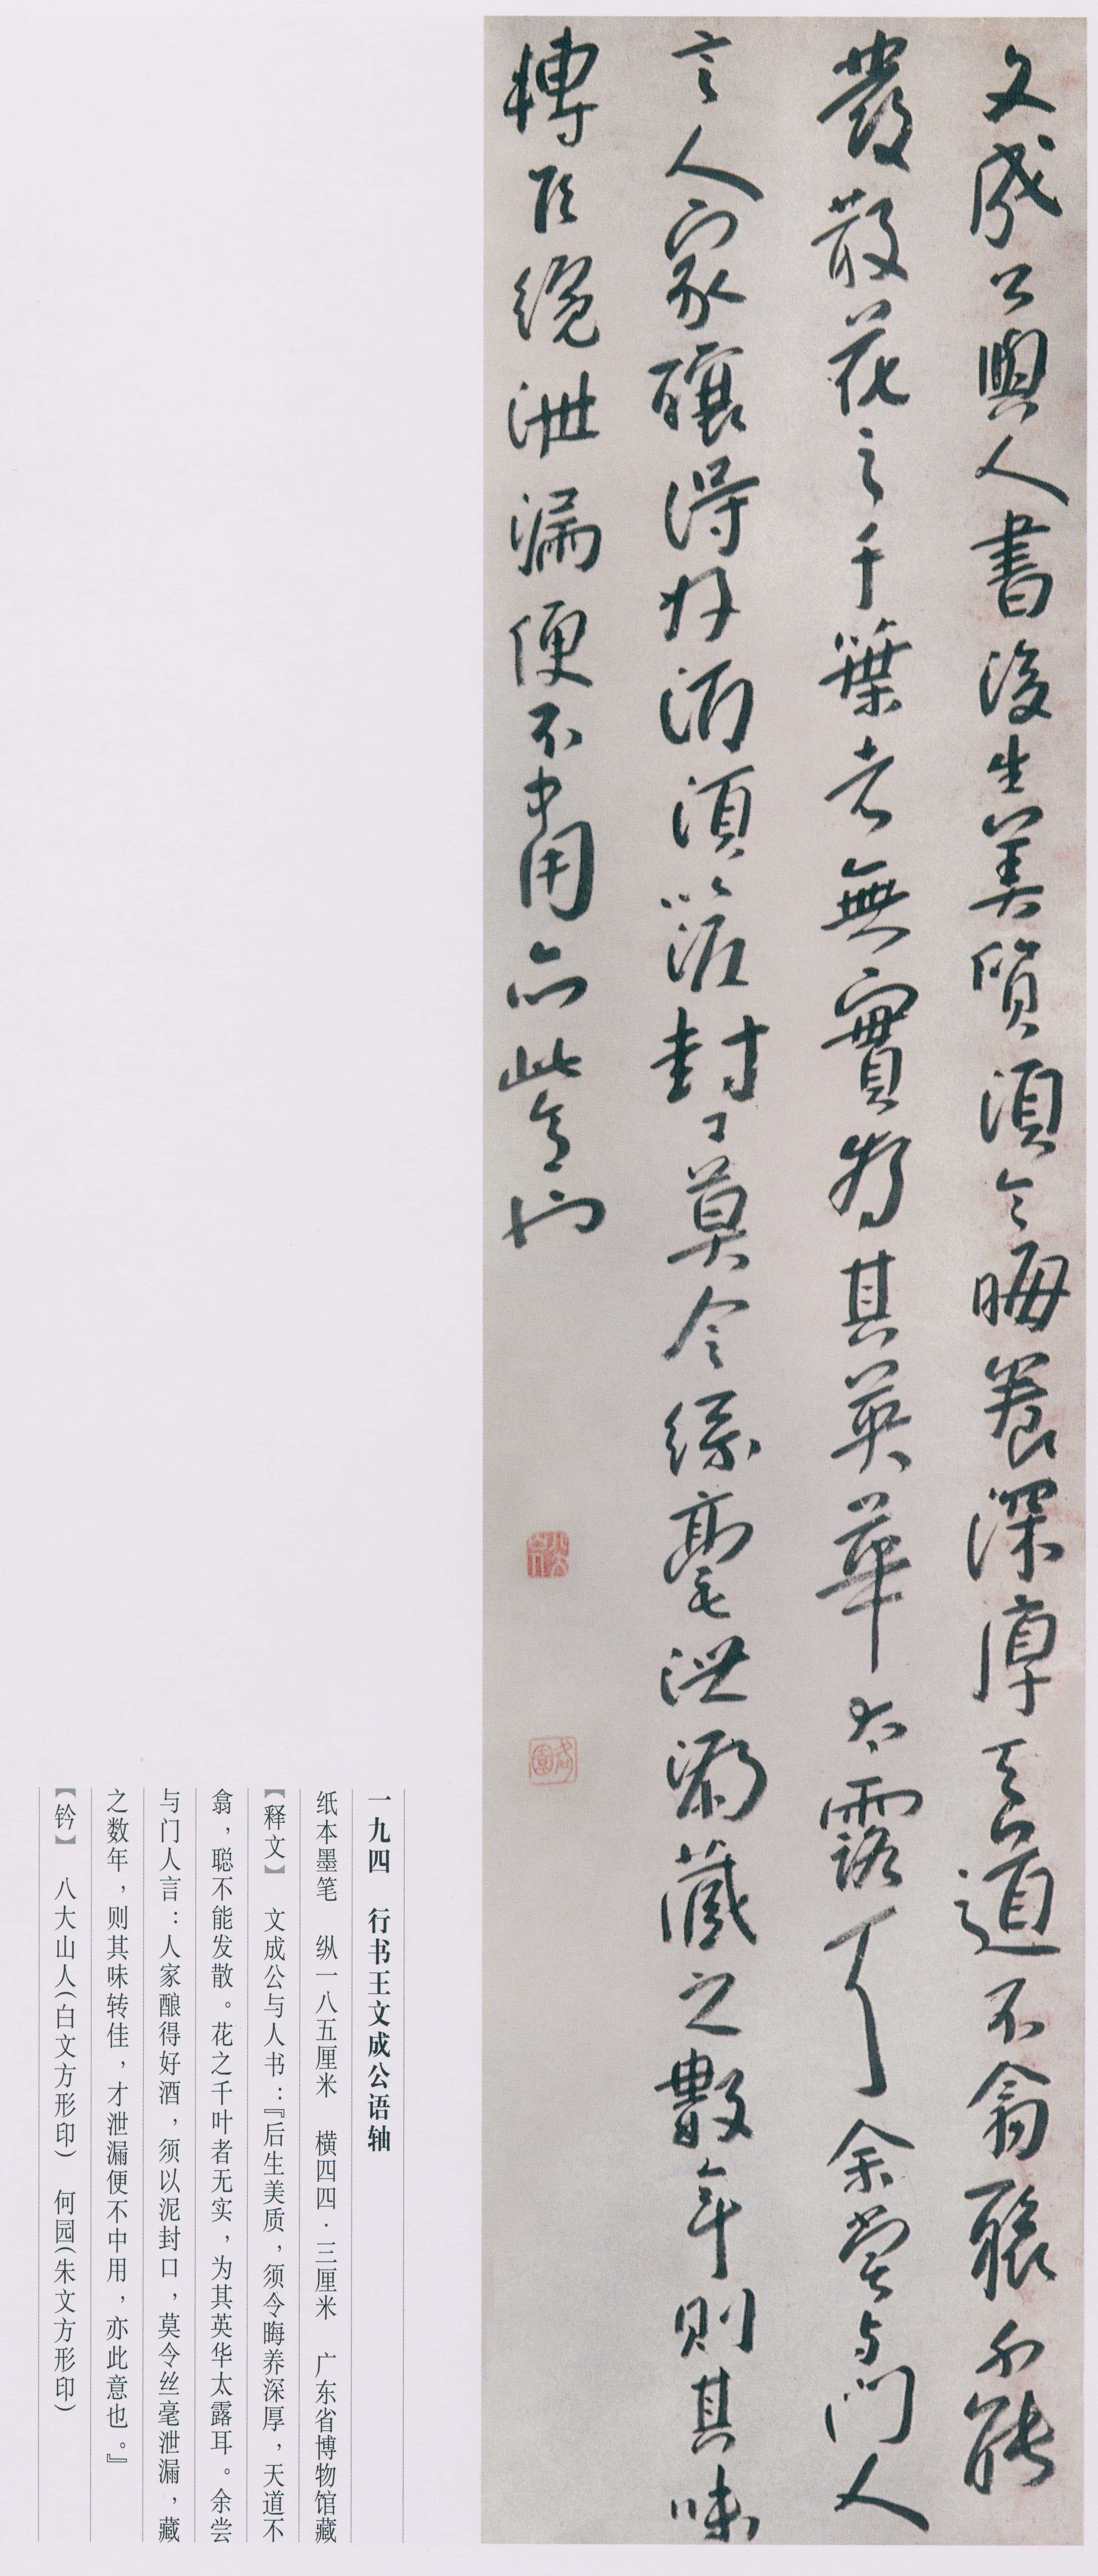 文成公與人書後生美質須令晦養深厚天道不翕聰不能
發散花之千葉者無實為其英華太露耳余嘗与門人
言人家釀得好酒須以泥封口莫令絲毫泄漏藏之數年則其味
轉佳纔泄漏便不中用亦此意也
一九四　行书王文成公语轴
纸本墨笔　纵一八五厘米　横四四·三厘米　广东省博物馆藏
【释文】　文成公与人书：『后生美质，须令晦养深厚，天道不
翕，聪不能发散。花之千叶者无实，为其英华太露耳。余尝
与门人言：人家酿得好酒，须以泥封口，莫令丝毫泄漏，藏
之数年，则其味转佳，才泄漏便不中用，亦此意也。』
【钤】　八大山人（白文方形印）　何园（朱文方形印）